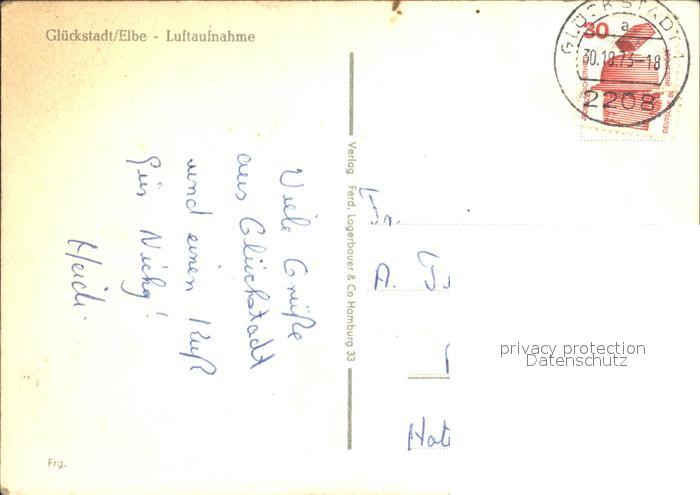 Glückstadt/Elbe - Luftaufnahme
Viele Grüße
aus Glückstadt
und einen Kuß
für Nicky!
Heidi.
Verlag Ferd. Lagerbauer & Co Hamburg 33
A.
Frg.
GLÜCKSTADT 1
a
30.10.73-18
2208
30
DEUTSCHE BUNDESPOST
privacy protection
Datenschutz